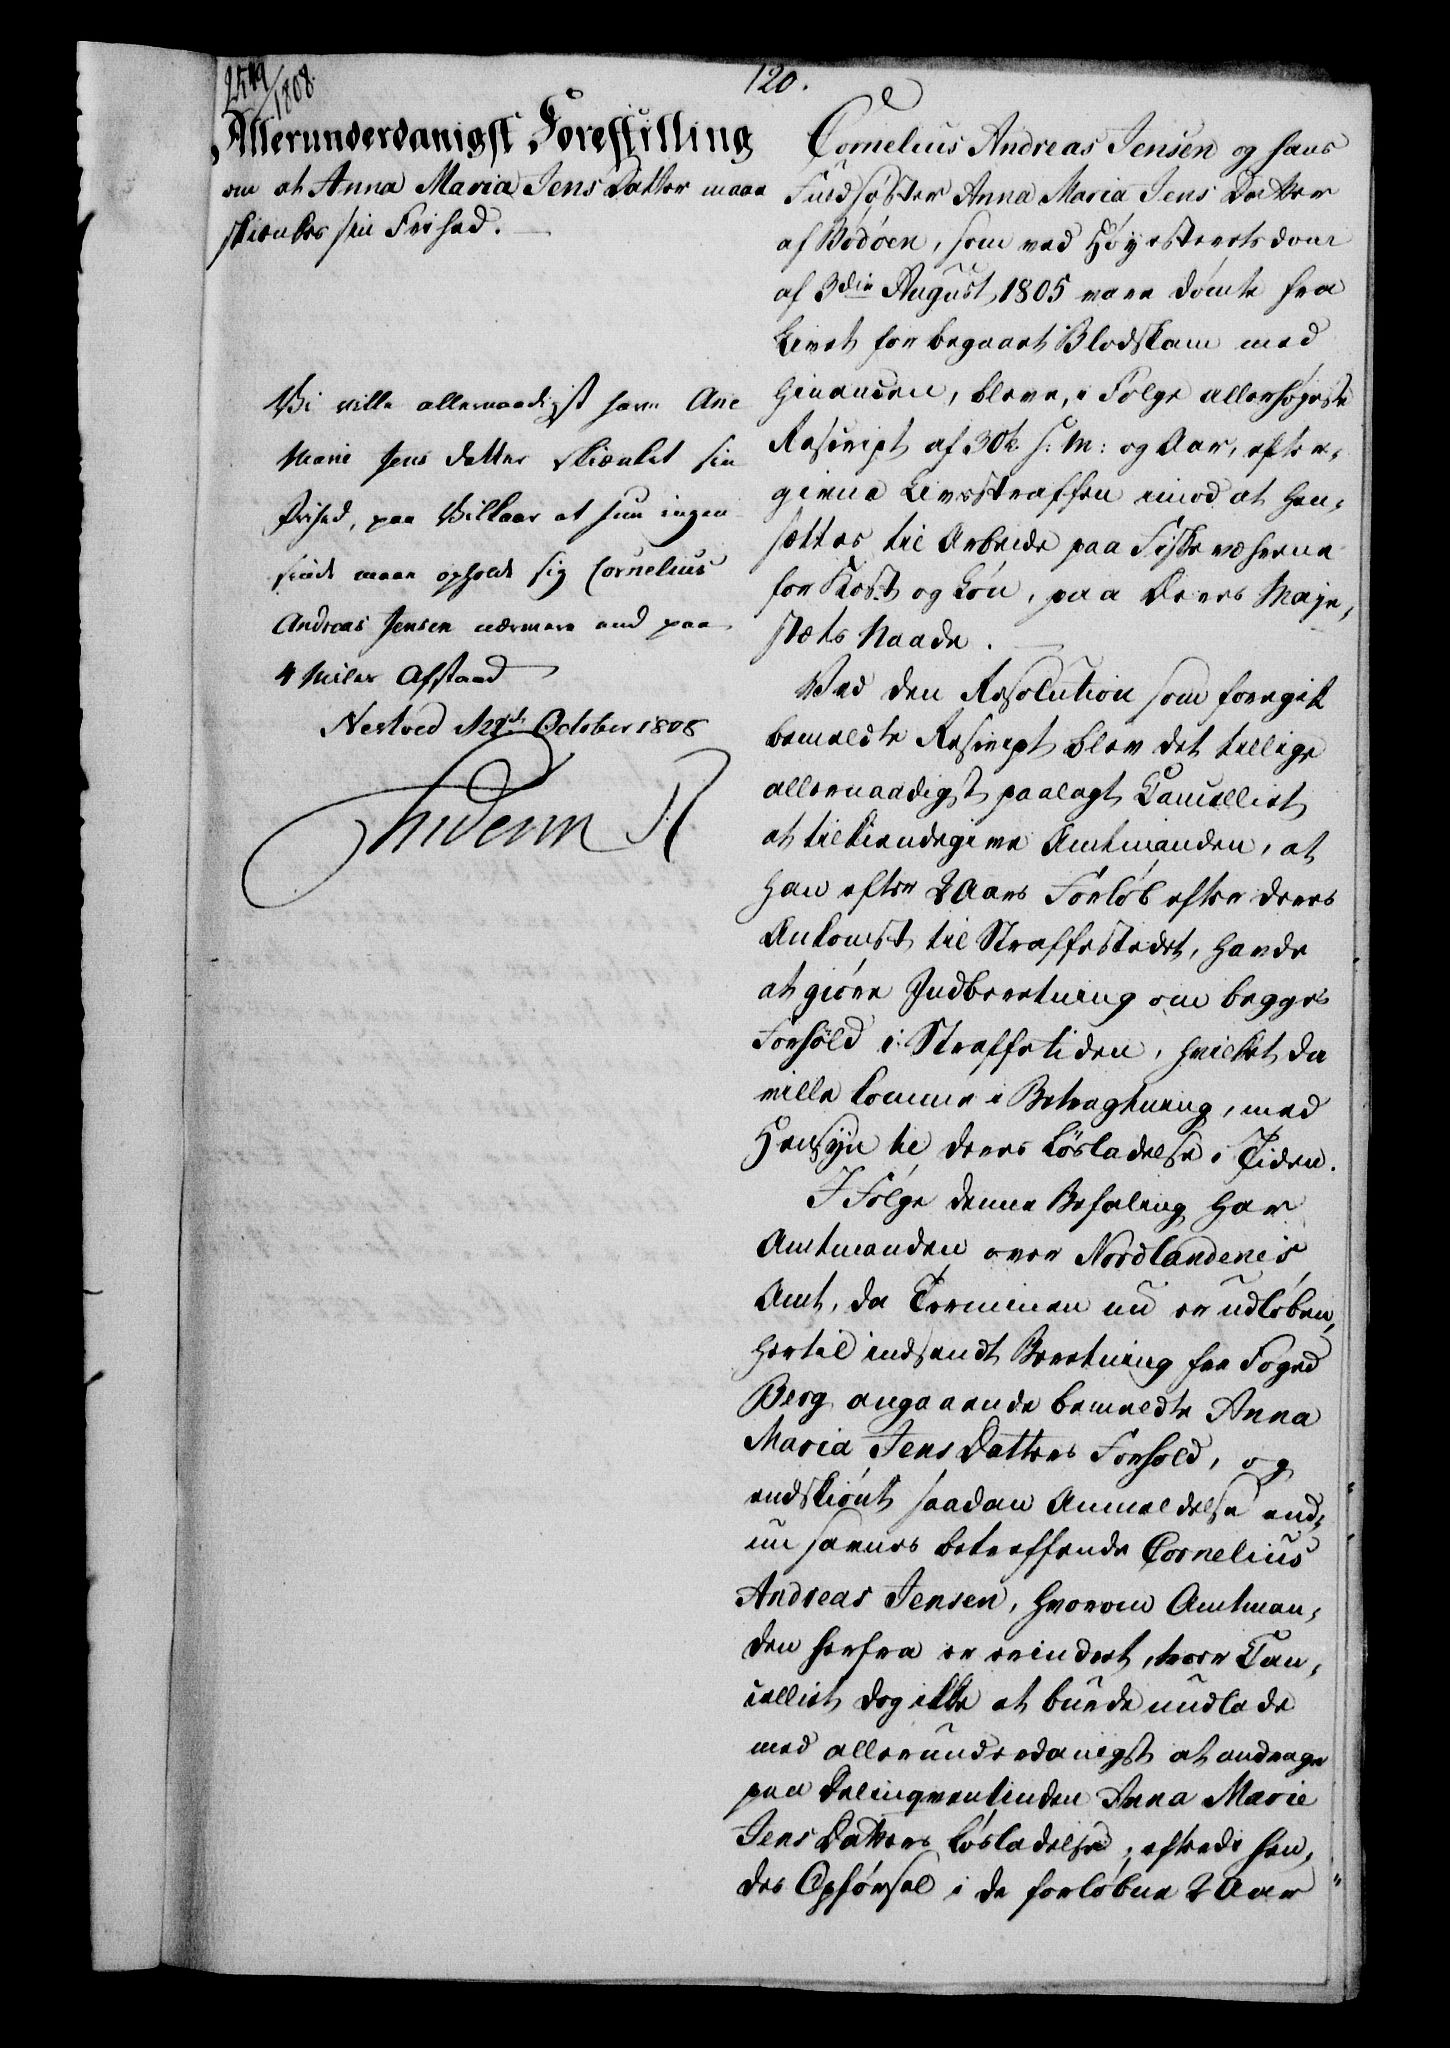 2519/1808.
120.
Allerunderdanigst Forestilling
om at Anna Maria Jens Datter maae
skienkes sin Frihed.
Vi ville allernaadigst have Ane
Marie Jens datter skiænket sin
Frihed, paa Villkaar at hun ingen
sinde maae opholde sig Cornelius
Andreas Jensen nærmere end paa
4 Miles Afstand
Nestved d 21de October 1808
Frideric R
Cornelius Andreas Jensen og hans
Fuldsøster Anna Maria Jens Datter
af Bodøen, som ved Höyesterets dom
af 3die August 1805 vare dömte fra
Livet for begaaet Blodskam med
hinanden, bleve, i Fölge allerhöyeste
Rescript af 30te s: M: og Aar, efter-
givne Livsstraffen imod at hen-
sættes til Arbeide paa Fiskeværerne
for Kost og Løn, paa Deres Maje-
stæts Naade.
Ved den Resolution som foregik
bemeldte Rescript blev det tillige
allernaadigst paalagt Cancelliet
at tilkiendegive Amtmanden, at
han efter 2 Aars Forløb efter deres
Ankomst til Straffestedet, havde
at giøre Indberetning om begges
Forhold i Straffetiden, hvilket da
ville komme i Betragtning, med
Hensyn til deres Løsladelse i Tiden.
I Følge denne Befaling har
Amtmanden over Nordlandenes
Amt, da Terminen nu er udløben,
hertil indsendt Beretning fra Foged
Berg angaaende bemeldte Anna
Maria Jens Datters Forhold, og
endskiønt saadan Anmeldelse end-
nu savnes betreffende Cornelius
Andreas Jensen, hvorom Amtman-
den herfra er erindret, troer Can-
celliet dog ikke at burde undlade
med allerunderdanigst at andrage
paa Delinqventinden Anna Marie
Jens Datters Løsladelse, efterdi hen-
des Opførsel i de forløbne 2 Aar